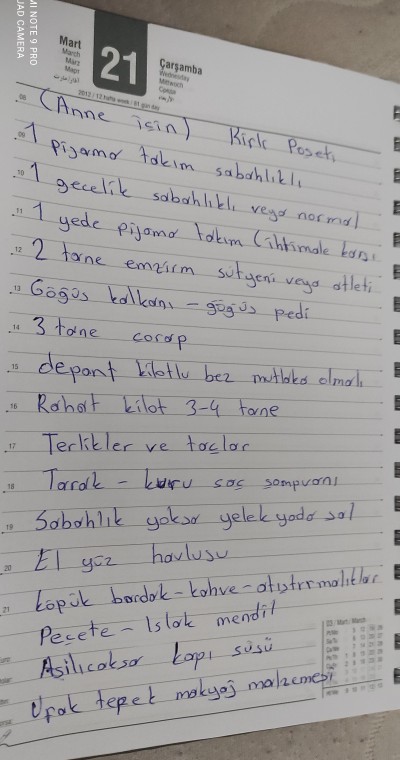 MI NOTE 9 PRO
UAD CAMERA
Mart
March
März
Март
21
Çarşamba
Wednesday
Mittwoch
Среда
2012 / 12.hafta week / 81.gün day
08 (Anne için) Kirli Poşeti
09 1 pijama takım sabahlıklı
10 1 gecelik sabahlıklı veya normal
11 1 yede pijama takım (ihtimale karşı
12 2 tane emzirm sütyeni veya atleti
13 Göğüs kalkanı - göğüs pedi
14 3 tane çorap
15 depant kilotlu bez mutlaka olmalı
16 Rahat kilot 3-4 tane
17 Terlikler ve taçlar
18 Tarak - kuru saç şampuanı
19 Sabahlık yoksa yelek yada şal
20 El yüz havlusu
21 köpük bardak - kahve - atıştırmalıklar
Peçete - Islak mendil
Asilicaksa kapı süsü
Ufak tepek makyaj malzemesi